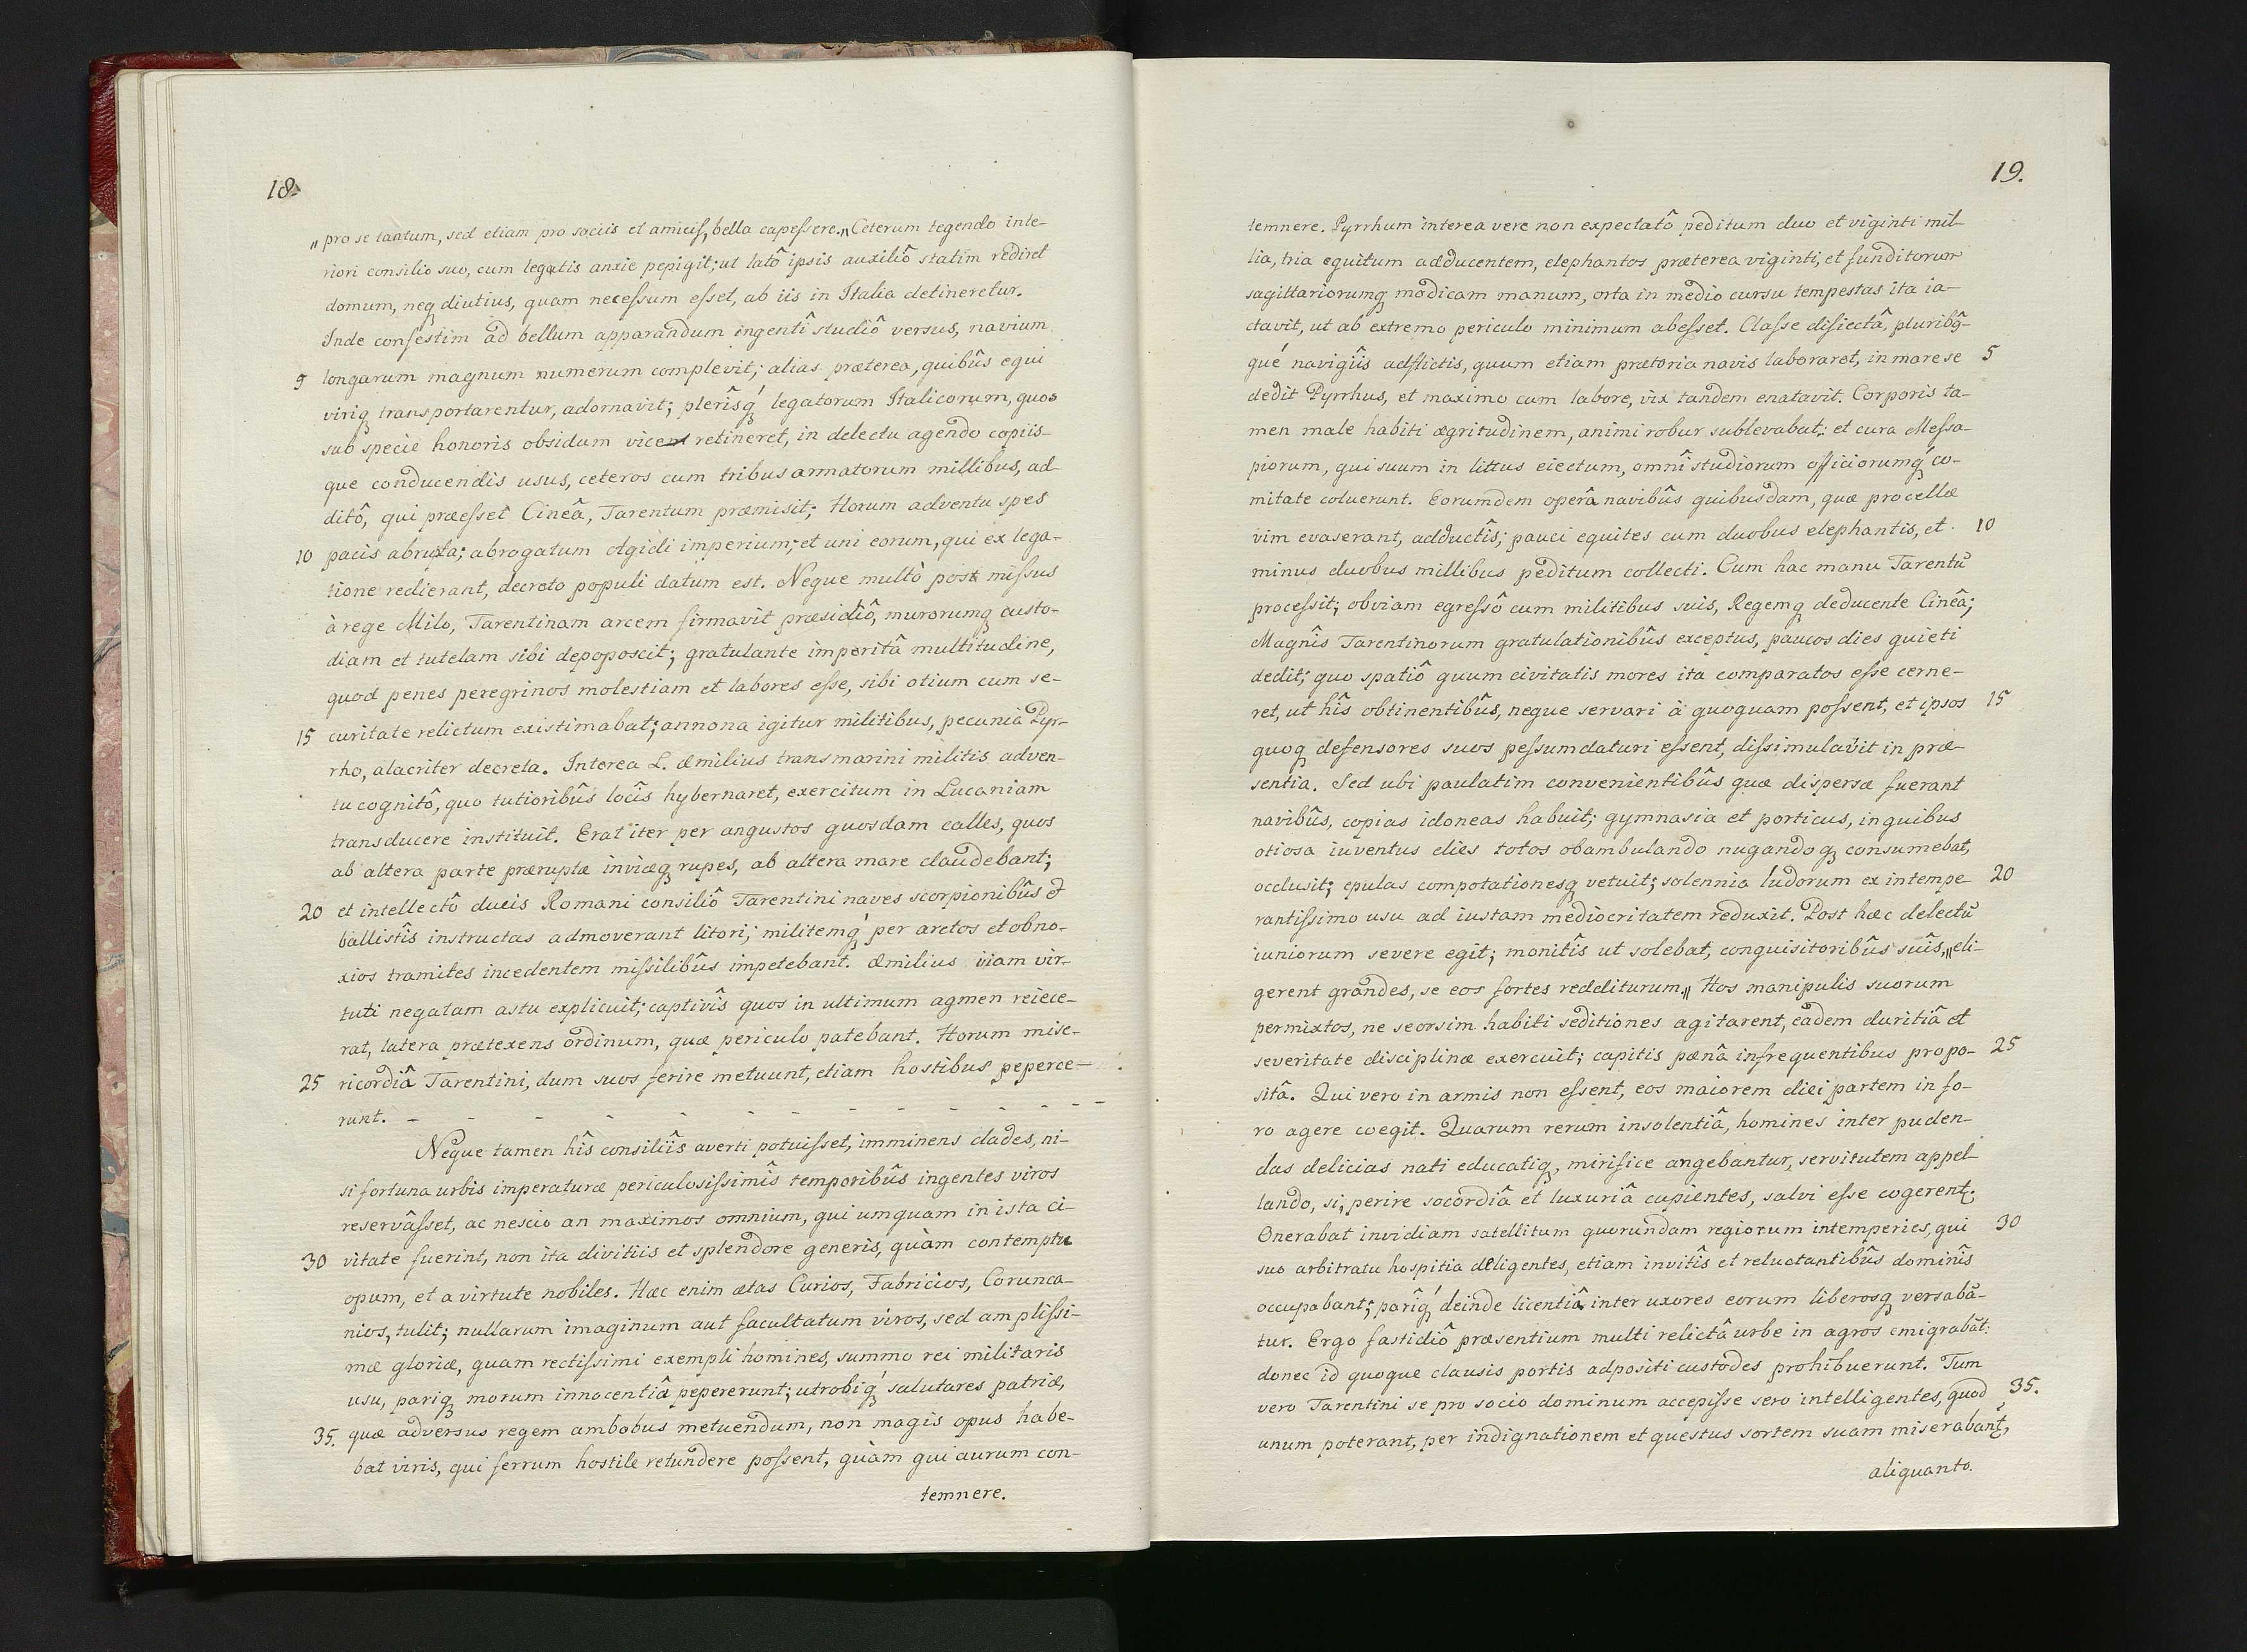 18.
„pro se tantum, sed etiam pro sociis et amicis, bella capessere.„ Ceterum tegendo inte-
riori consilio suo, cum legatis anxie pepigit; ut latô ipsis auxiliô statim rediret
domum, neq diutius, quam necessum esset, ab iis in Italia detineretur.
Inde confestim ad bellum apparandum ingentî studiô versus, navium
5 longarum magnum numerum complevit; alias præterea, quibûs equi
viriq transportarentur, adornavit; plerîsq́ legatorum Italicorum, quos
sub specie honoris obsidum vicem retineret, in delectu agendo copiis-
que conducendis usus, ceteros cum tribus armatorum millibus, ad-
ditô, qui præesset Cineâ, Tarentum præmisit; Horum adventu spes
10 pacis abrupta; abrogatum Agidi imperium; et uni eorum, qui ex lega-
tione redierant, decreto populi datum est. Neque multò post missus
à rege Milo, Tarentinam arcem firmavit præsidiô, murorumq custo-
diam et tutelam sibi depoposcit; gratulante imperitâ multitudine,
quod penes peregrinos molestiam et labores esse, sibi otium cum se-
15 curitate relictum existimabat; annona igitur militibus, pecunia Pyr-
rho, alacriter decreta. Interea L. Æmilius transmarini militis adven-
tu cognitô, quo tutioribûs locîs hybernaret, exercitum in Lucaniam
transducere instituit. Erat iter per angustos quosdam calles, quos
ab altera parte præruptæ inviæq rupes, ab altera mare claudebant;
20 et intellectô ducis Romani consiliô Tarentini naves scorpionibûs &
ballistîs instructas admoverant litori; militemq́ per arctos et obno-
xios tramites incedentem missilibûs impetebant. Æmilius viam vir-
tuti negatam astu explicuit; captivîs quos in ultimum agmen reiece-
rat, latera prætexens ordinum, quæ periculo patebant. Horum mise-
25 ricordiâ Tarentini, dum suos ferire metuunt, etiam hostibus peperce-
runt. - - - - - - - - - - - - - -
Neque tamen hîs consiliîs averti potuisset, imminens clades, ni-
si fortuna urbis imperaturæ periculosissimîs temporibûs ingentes viros
reservâsset, ac nescio an maximos omnium, qui umquam in ista ci-
30 vitate fuerint, non ita divitiis et splendore generis, quàm contemptu
opum, et a virtute nobiles. Hæc enim ætas Curios, Fabricios, Corunca-
nios, tulit; nullarum imaginum aut facultatum viros, sed amplissi-
mæ gloriæ, quam rectissimi exempli homines, summo rei militaris
usu, pariq morum innocentiâ pepererunt; utrobiq́ salutares patriæ,
35. quæ adversus regem ambobus metuendum, non magis opus habe-
bat viris, qui ferrum hostile retundere possent, quàm qui aurum con-
temnere.
19.
temnere. Pyrrhum interea vere non expectatô peditum duo et viginti mil-
lia, tria equitum adducentem, elephantos præterea viginti, et funditorum
sagittariorumq modicam manum, orta in medio cursu tempestas ita ia-
ctavit, ut ab extremo periculo minimum abesset. Classe disiectâ, pluribûs-
qué navigiîs adflictis, quum etiam prætoria navis laboraret, in mare se 5
dedit Pyrrhus, et maximo cum labore, vix tandem enatavit. Corporis ta-
men male habiti ægritudinem, animi robur sublevabat: et cura Messa-
piorum, qui suum in littus eiectum, omnî studiorum officiorumq́ co-
mitate coluerunt. Eorumdem operâ navibûs quibusdam, quæ procellæ
vim evaserant, adductîs; pauci equites cum duobus elephantis, et 10
minus duobus millibus peditum collecti. Cum hac manu Tarentū
processit; obviam egressô cum militibus suis, Regemq deducente Cineâ;
Magnîs Tarentinorum gratulationibûs exceptus, paucos dies quieti
dedit; quo spatiô quum civitatis mores ita comparatos esse cerne-
ret, ut hîs obtinentibûs, neque servari à quoquam possent, et ipsos 15
quoq defensores suos pessumdaturi essent, dissimulavit in præ-
sentia. Sed ubi paulatim convenientibûs quæ dispersæ fuerant
navibûs, copias idoneas habuit; gymnasia et porticus, in quibus
otiosa iuventus dies totos obambulando nugandoq consumebat,
occlusit; epulas compotationesq vetuit; solennia ludorum ex intempe- 20
rantissimo usu ad iustam mediocritatem reduxit. Post hæc delectū
iuniorum severe egit; monitîs ut solebat, conquisitoribûs suîs, „eli-
gerent grandes, se eos fortes redditurum„ Hos manipulis suorum
permixtos, ne seorsim habiti seditiones agitarent, eâdem duritiâ et
severitate disciplinæ exercuit; capitis pænâ infrequentibus propo- 25
sitâ. Qui vero in armis non essent, eos maiorem diei partem in fo-
ro agere coegit. Quarum rerum insolentiâ, homines inter puden-
das delicias nati educatiq, mirifice angebantur, servitutem appel-
lando, si, perire socordiâ et luxuriâ cupientes, salvi esse cogerent;
Onerabat invidiam satellitum quorundam regiorum intemperies, qui 30
suo arbitratu hospitia deligentes, etiam invitîs et reluctantibûs dominîs
occupabant; parîq́ deinde licentiâ inter uxores eorum liberosq versabā-
tur. Ergo fastidiô præsentium multi relictâ urbe in agros emigrabāt:
donec id quoque clausis portis adpositi custodes prohibuerunt. Tum
vero Tarentini se pro socio dominum accepisse sero intelligentes, quod 35.
unum poterant, per indignationem et questus sortem suam miserabant,
aliquanto.